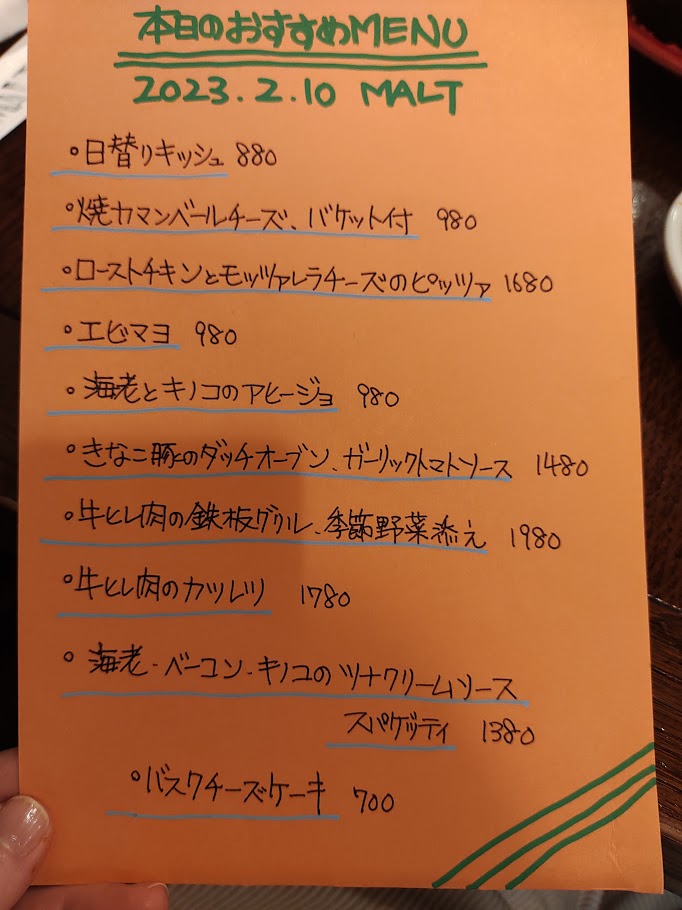 本日のおすすめMENU
2023.2.10 MALT
・日替りキッシュ 880
・焼カマンベールチーズ、バケット付 980
・ローストチキンとモッツァレラチーズのピッツァ 1680
・エビマヨ 980
・海老とキノコのアヒージョ 980
・きなこ豚のダッチオーブン、ガーリックトマトソース 1480
・牛ヒレ肉の鉄板グリル、季節野菜添え 1980
・牛ヒレ肉のカツレツ 1780
・海老・ベーコン・キノコのツナクリームソース
スパゲッティ 1380
・バスクチーズケーキ 700